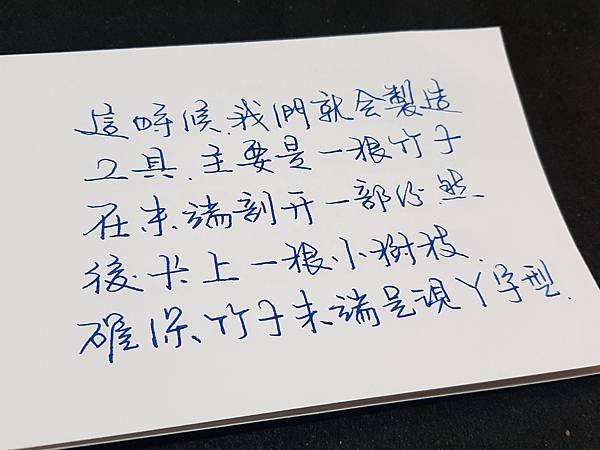 這時候我們就会製造
工具.主要是一根竹子
在末端剖开一部份然
後卡上一根小樹枝.
確保竹子末端呈現丫字型.